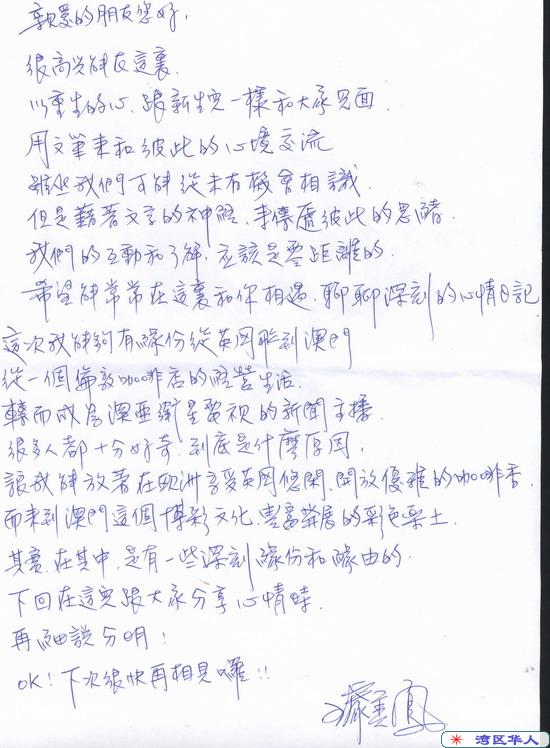 親愛的朋友您好,
很高兴能在這裏.
以重生的心.跟新生兒一樣和大家見面.
用文筆來和彼此的心境交流
雖然我們可能從未有機會相識.
但是藉著文字的神經.來傳遞彼此的思緒.
我們的互動和了解.應該是零距離的.
希望能常常在這裏和你相遇.聊聊深刻的心情日記
這次我能夠有緣份從英国飛到澳門
從一個倫敦咖啡店的經營生活.
轉而成為澳亞衛星電視的新聞主播.
很多人都十分好奇.到底是什麼原因,
讓我能放著在欧洲享受英国悠閑.開放優雅的咖啡香.
而來到澳門這個博彩文化.豐富發展的彩色樂土.
其實.在其中.是有一些深刻緣份和緣由的.
下回在這兒跟大家分享心情時.
再細說分明!
OK!下次很快再相見囉!!
湾区华人